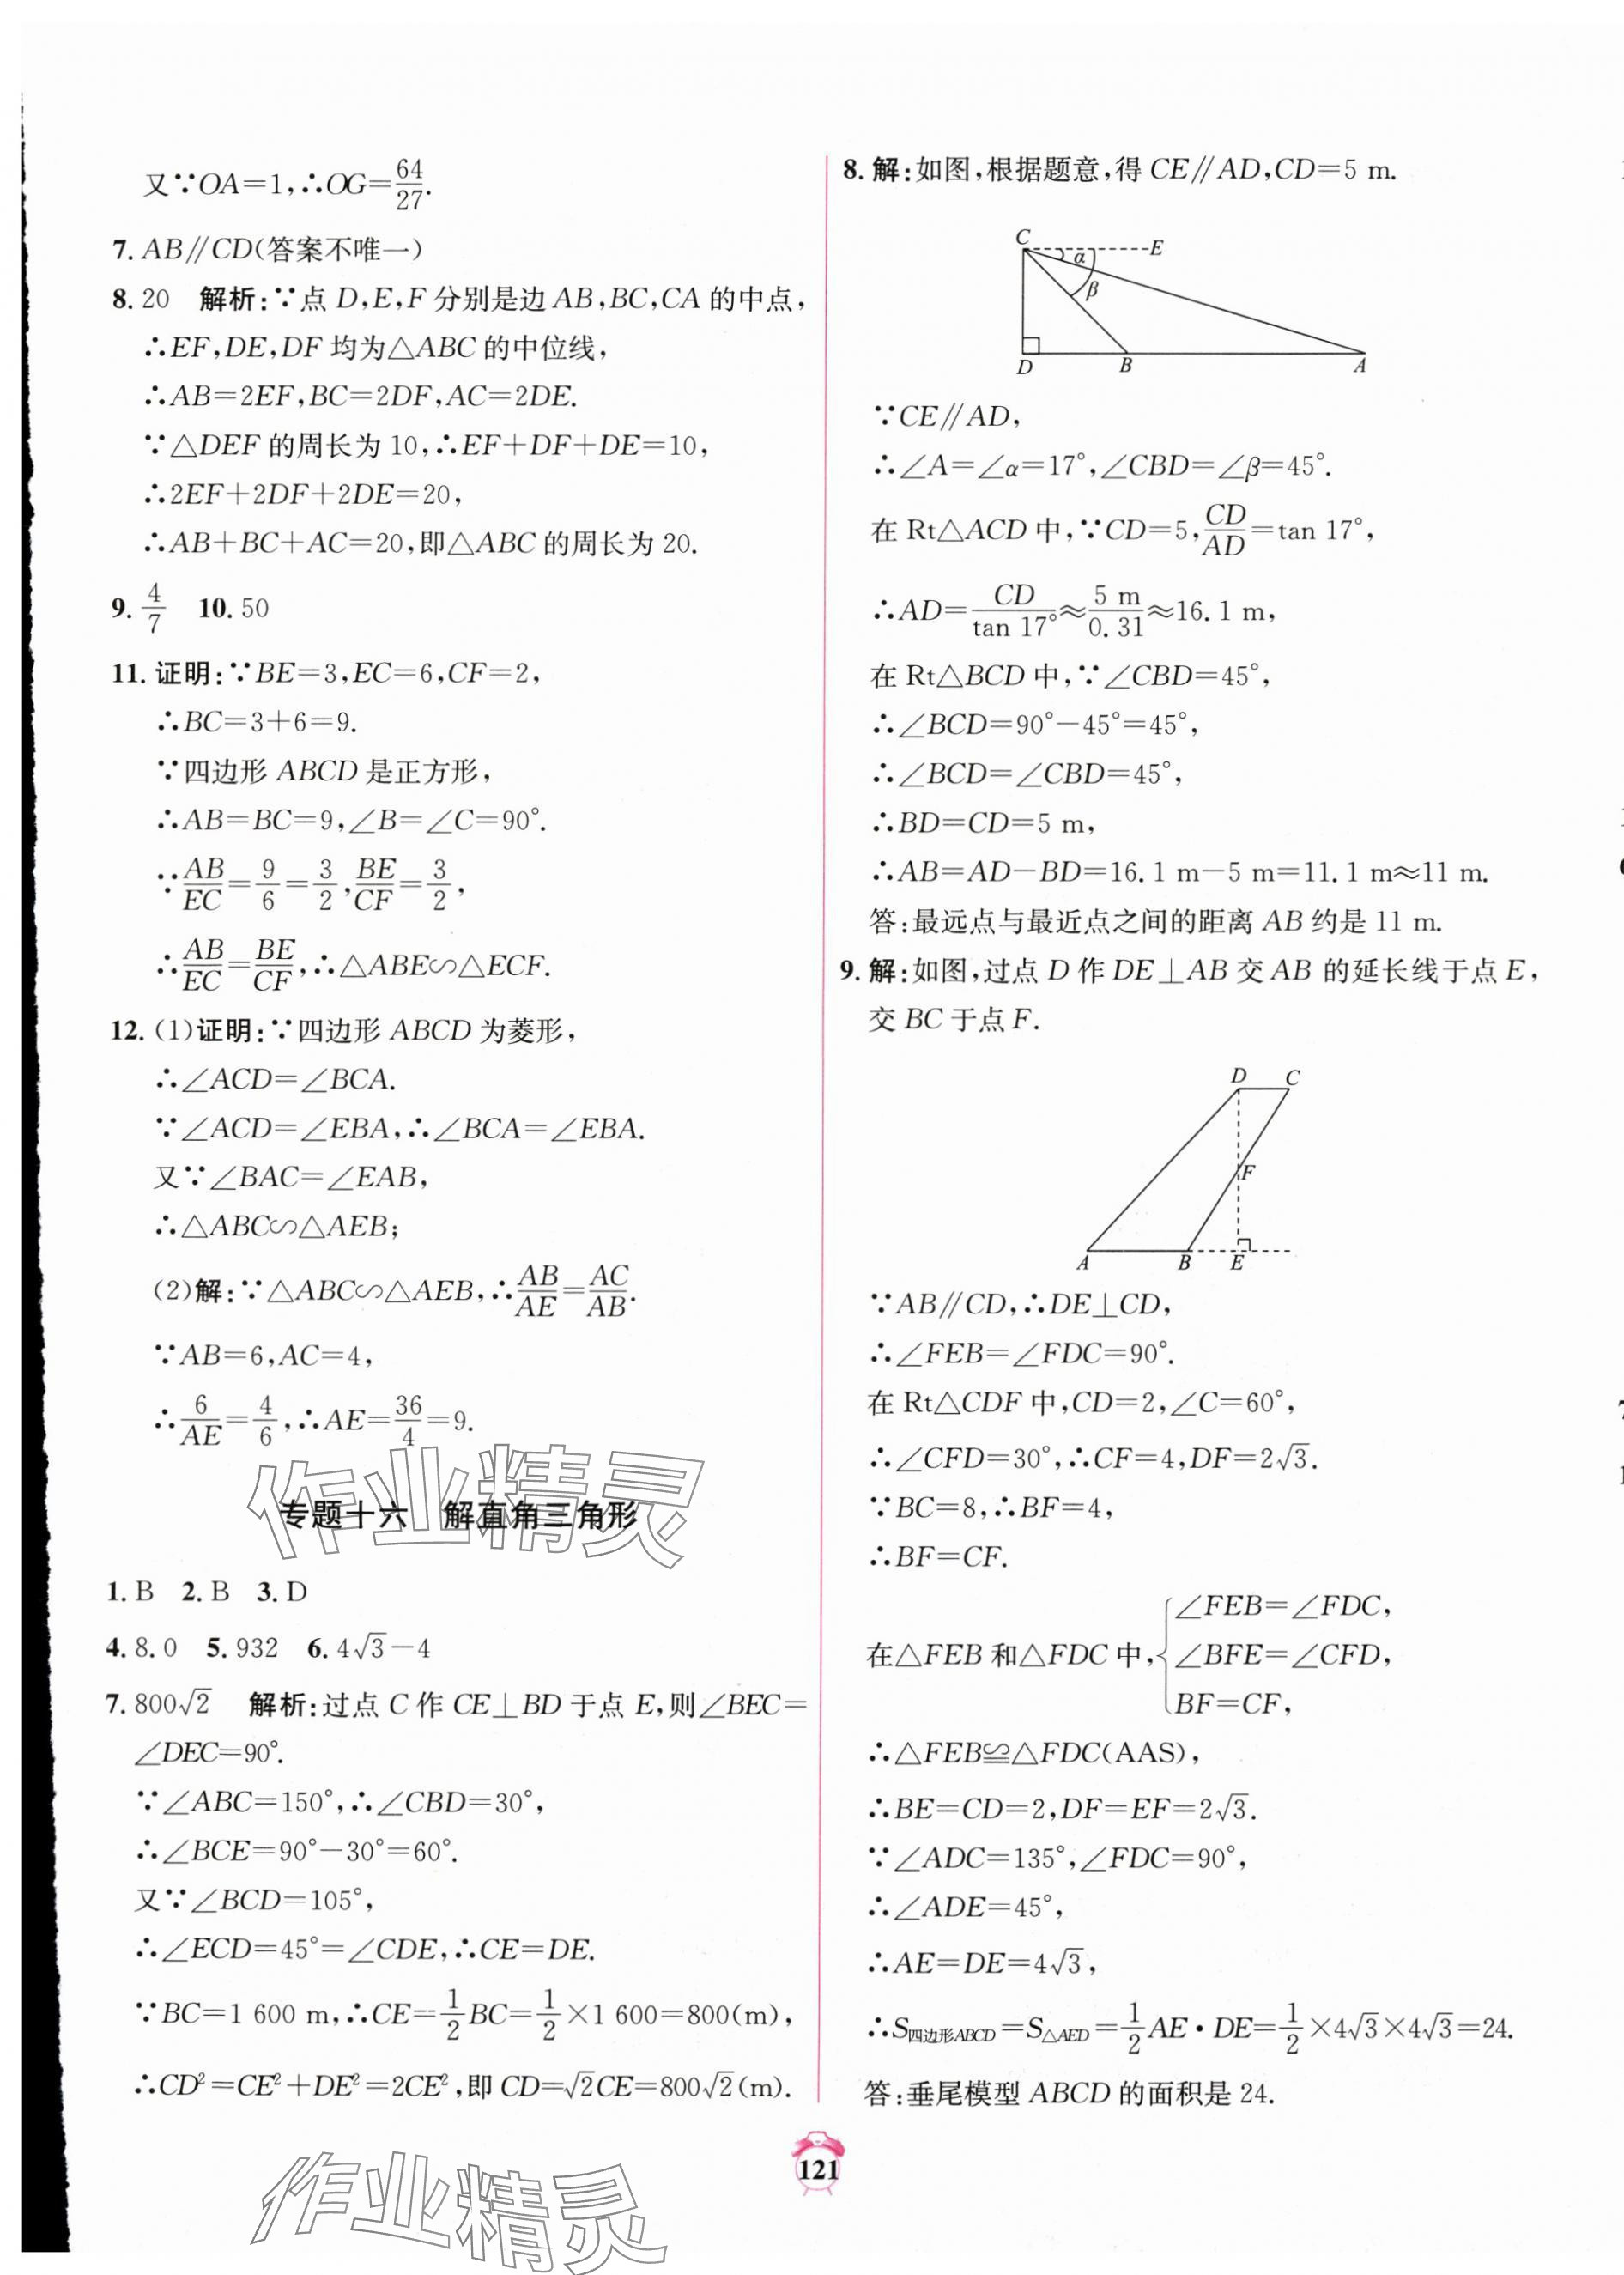 又∵OA=1,∴OG=64/27.
7. AB∥CD(答案不唯一)
8. 20 解析:∵点 D,E,F 分别是边 AB,BC,CA 的中点,
∴EF,DE,DF 均为△ABC 的中位线,
∴AB=2EF,BC=2DF,AC=2DE.
∵△DEF 的周长为 10,∴EF+DF+DE=10,
∴2EF+2DF+2DE=20,
∴AB+BC+AC=20,即△ABC 的周长为 20.
9. 4/7 10. 50
11. 证明:∵BE=3,EC=6,CF=2,
∴BC=3+6=9.
∵四边形 ABCD 是正方形,
∴AB=BC=9,∠B=∠C=90°.
∵AB/EC=9/6=3/2,BE/CF=3/2,
∴AB/EC=BE/CF,∴△ABE∽△ECF.
12. (1)证明:∵四边形 ABCD 为菱形,
∴∠ACD=∠BCA.
∵∠ACD=∠EBA,∴∠BCA=∠EBA.
又∵∠BAC=∠EAB,
∴△ABC∽△AEB;
(2)解:∵△ABC∽△AEB,∴AB/AE=AC/AB.
∵AB=6,AC=4,
∴6/AE=4/6,∴AE=36/4=9.
作业精灵
专题十六 解直角三角形
1. B 2. B 3. D
4. 8.0 5. 932 6. 4√3-4
7. 800√2 解析:过点 C 作 CE⊥BD 于点 E,则∠BEC=
∠DEC=90°.
∵∠ABC=150°,∴∠CBD=30°,
∴∠BCE=90°-30°=60°.
又∵∠BCD=105°,
∴∠ECD=45°=∠CDE,∴CE=DE.
∵BC=1 600 m,∴CE=1/2BC=1/2×1 600=800(m),
∴CD²=CE²+DE²=2CE²,即 CD=√2CE=800√2(m).
8. 解:如图,根据题意,得 CE∥AD,CD=5 m.
C E
α
β
D B A
∵CE∥AD,
∴∠A=∠α=17°,∠CBD=∠β=45°.
在 Rt△ACD 中,∵CD=5,CD/AD=tan 17°,
∴AD=CD/tan 17°≈5 m/0.31≈16.1 m,
在 Rt△BCD 中,∵∠CBD=45°,
∴∠BCD=90°-45°=45°,
∴∠BCD=∠CBD=45°,
∴BD=CD=5 m,
∴AB=AD-BD=16.1 m-5 m=11.1 m≈11 m.
答:最远点与最近点之间的距离 AB 约是 11 m.
9. 解:如图,过点 D 作 DE⊥AB 交 AB 的延长线于点 E,
交 BC 于点 F.
D C
F
A B E
∵AB∥CD,∴DE⊥CD,
∴∠FEB=∠FDC=90°.
在 Rt△CDF 中,CD=2,∠C=60°,
∴∠CFD=30°,∴CF=4,DF=2√3.
∵BC=8,∴BF=4,
∴BF=CF.
∠FEB=∠FDC,
在△FEB 和△FDC 中,{∠BFE=∠CFD,
BF=CF,
∴△FEB≌△FDC(AAS),
∴BE=CD=2,DF=EF=2√3.
∵∠ADC=135°,∠FDC=90°,
∴∠ADE=45°,
∴AE=DE=4√3,
∴S四边形ABCD=S△AED=1/2AE·DE=1/2×4√3×4√3=24.
答:垂尾模型 ABCD 的面积是 24.
121
作业精灵